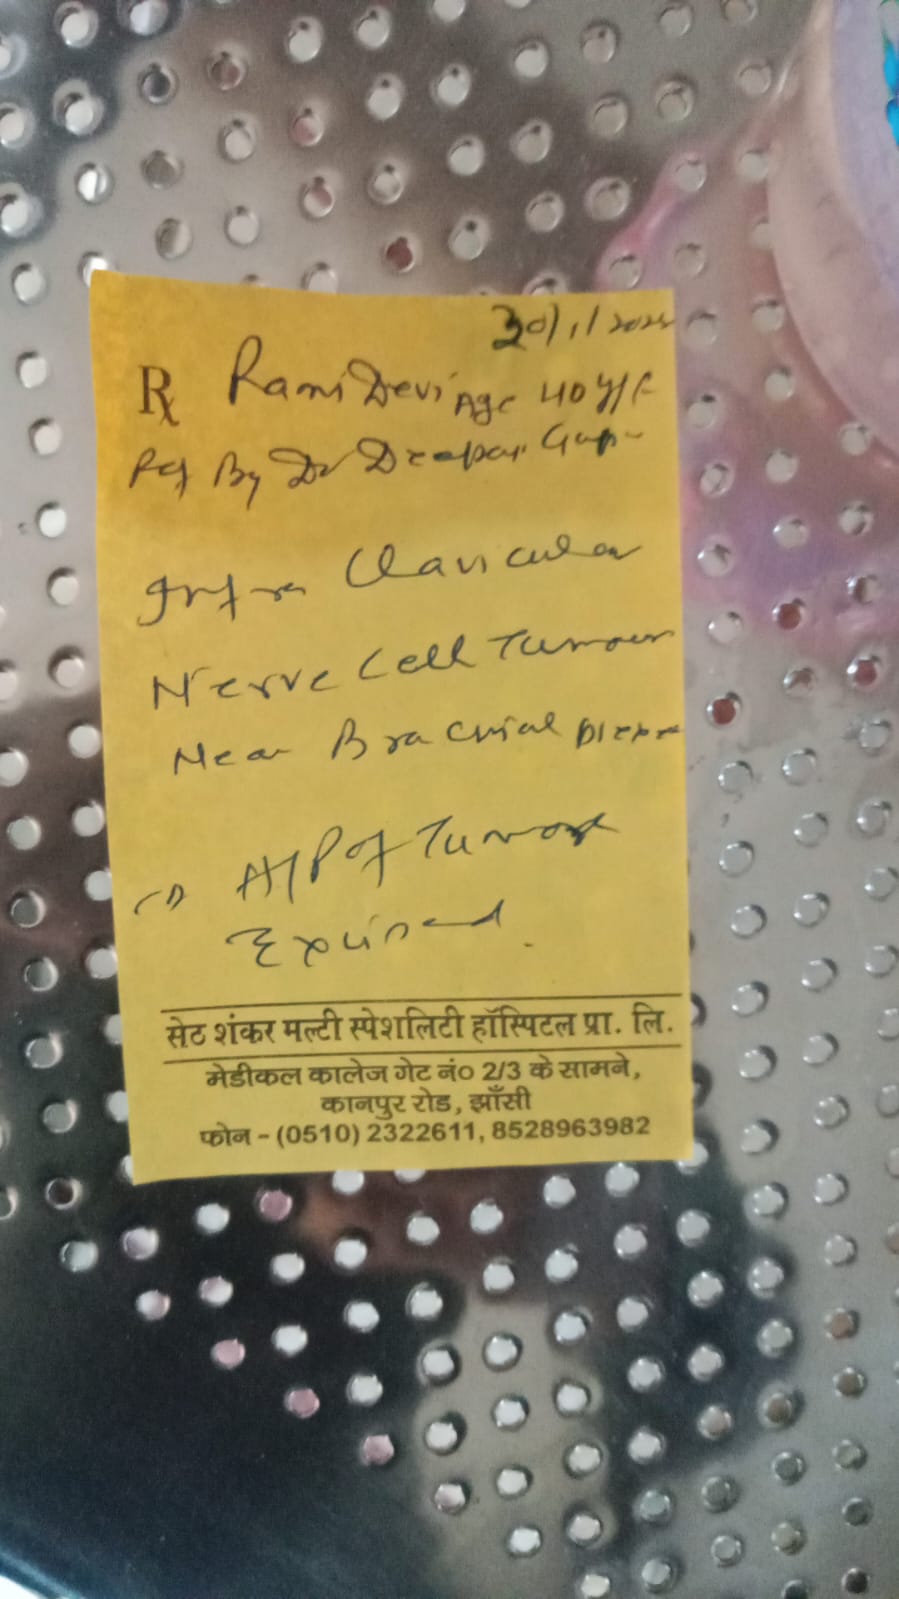 30/1/2025
Rx Rani Devi Age 40 Y/F
Ref By Dr Deepak Gup
Infra Clavicular
Nerve Cell Tumour
Near Brachial Plexu
H/P of Tumor
Excised
सेठ शंकर मल्टी स्पेशलिटी हॉस्पिटल प्रा. लि.
मेडीकल कालेज गेट नं० 2/3 के सामने,
कानपुर रोड, झाँसी
फोन - (0510) 2322611, 8528963982